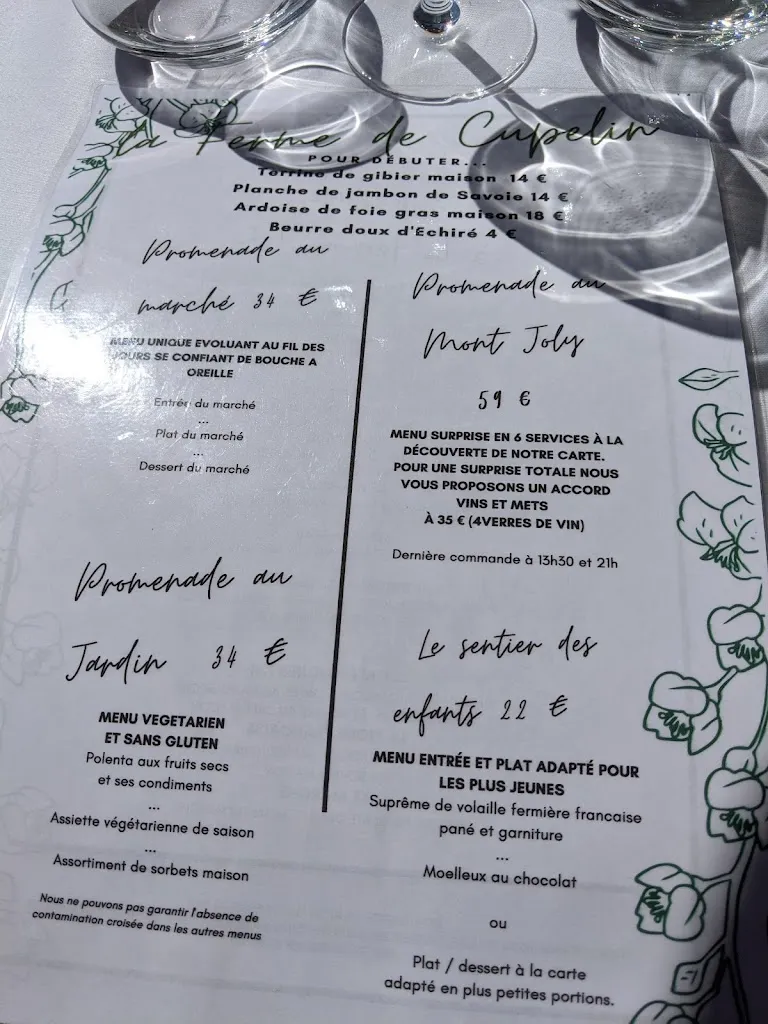 la Ferme de Cupelin
POUR DÉBUTER...
Terrine de gibier maison 14 €
Planche de jambon de Savoie 14 €
Ardoise de foie gras maison 18 €
Beurre doux d'Echiré 4 €
Promenade au
marché 34 €
MENU UNIQUE EVOLUANT AU FIL DES
JOURS SE CONFIANT DE BOUCHE A
OREILLE
Entrée du marché
...
Plat du marché
...
Dessert du marché
Promenade au
Mont Joly
59 €
MENU SURPRISE EN 6 SERVICES À LA
DÉCOUVERTE DE NOTRE CARTE.
POUR UNE SURPRISE TOTALE NOUS
VOUS PROPOSONS UN ACCORD
VINS ET METS
À 35 € (4VERRES DE VIN)
Dernière commande à 13h30 et 21h
Promenade au
Jardin 34 €
MENU VEGETARIEN
ET SANS GLUTEN
Polenta aux fruits secs
et ses condiments
...
Assiette végétarienne de saison
...
Assortiment de sorbets maison
Nous ne pouvons pas garantir l'absence de
contamination croisée dans les autres menus
Le sentier des
enfants 22 €
MENU ENTRÉE ET PLAT ADAPTÉ POUR
LES PLUS JEUNES
Suprême de volaille fermière francaise
pané et garniture
...
Moelleux au chocolat
ou
Plat / dessert à la carte
adapté en plus petites portions.